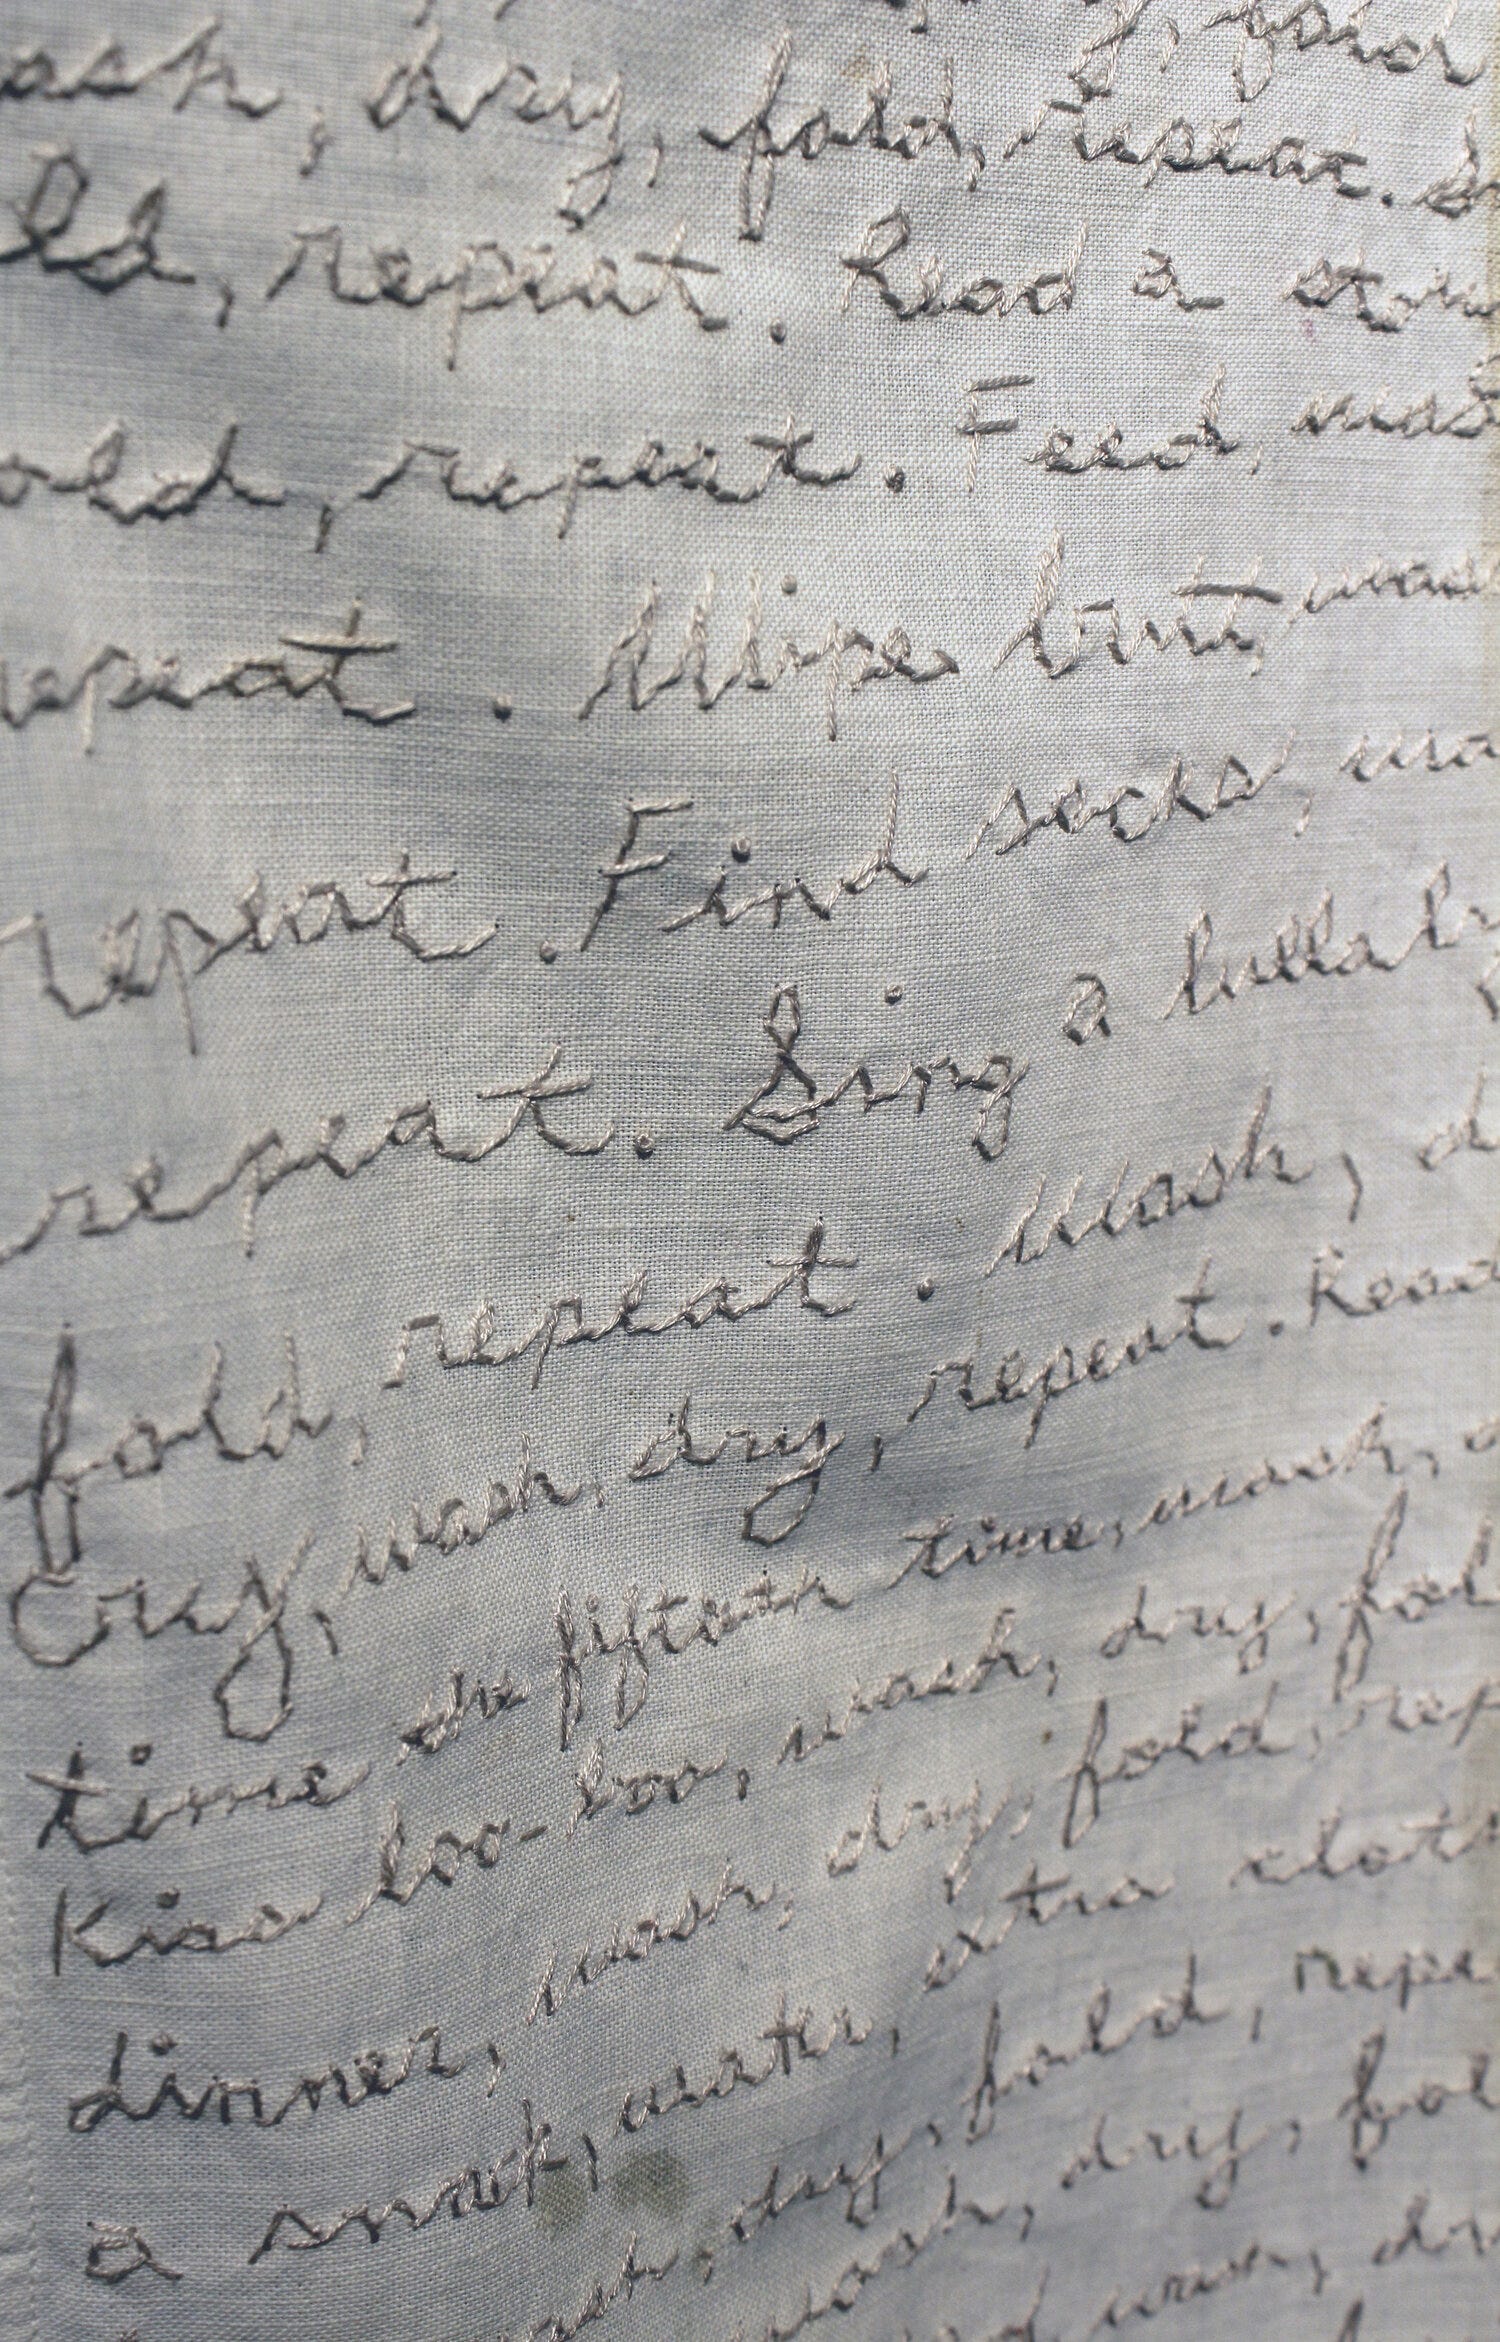 , fold
ash, dry, fold, repeat. S
ld, repeat. Read a stor
old, repeat. Feed, was
repeat. Wipe butt, was
repeat. Find socks, wa
repeat. Sing a lullaby
fold, repeat. Wash, d
Cry, wash, dry, repeat. Read
time the fifteenth time, wash, d
Kiss boo-boo, wash, dry, fol
dinner, wash, dry, fold, rep
a snack, water, extra cloth
ash, dry, fold, repe
wash, dry, fol
wash, dr